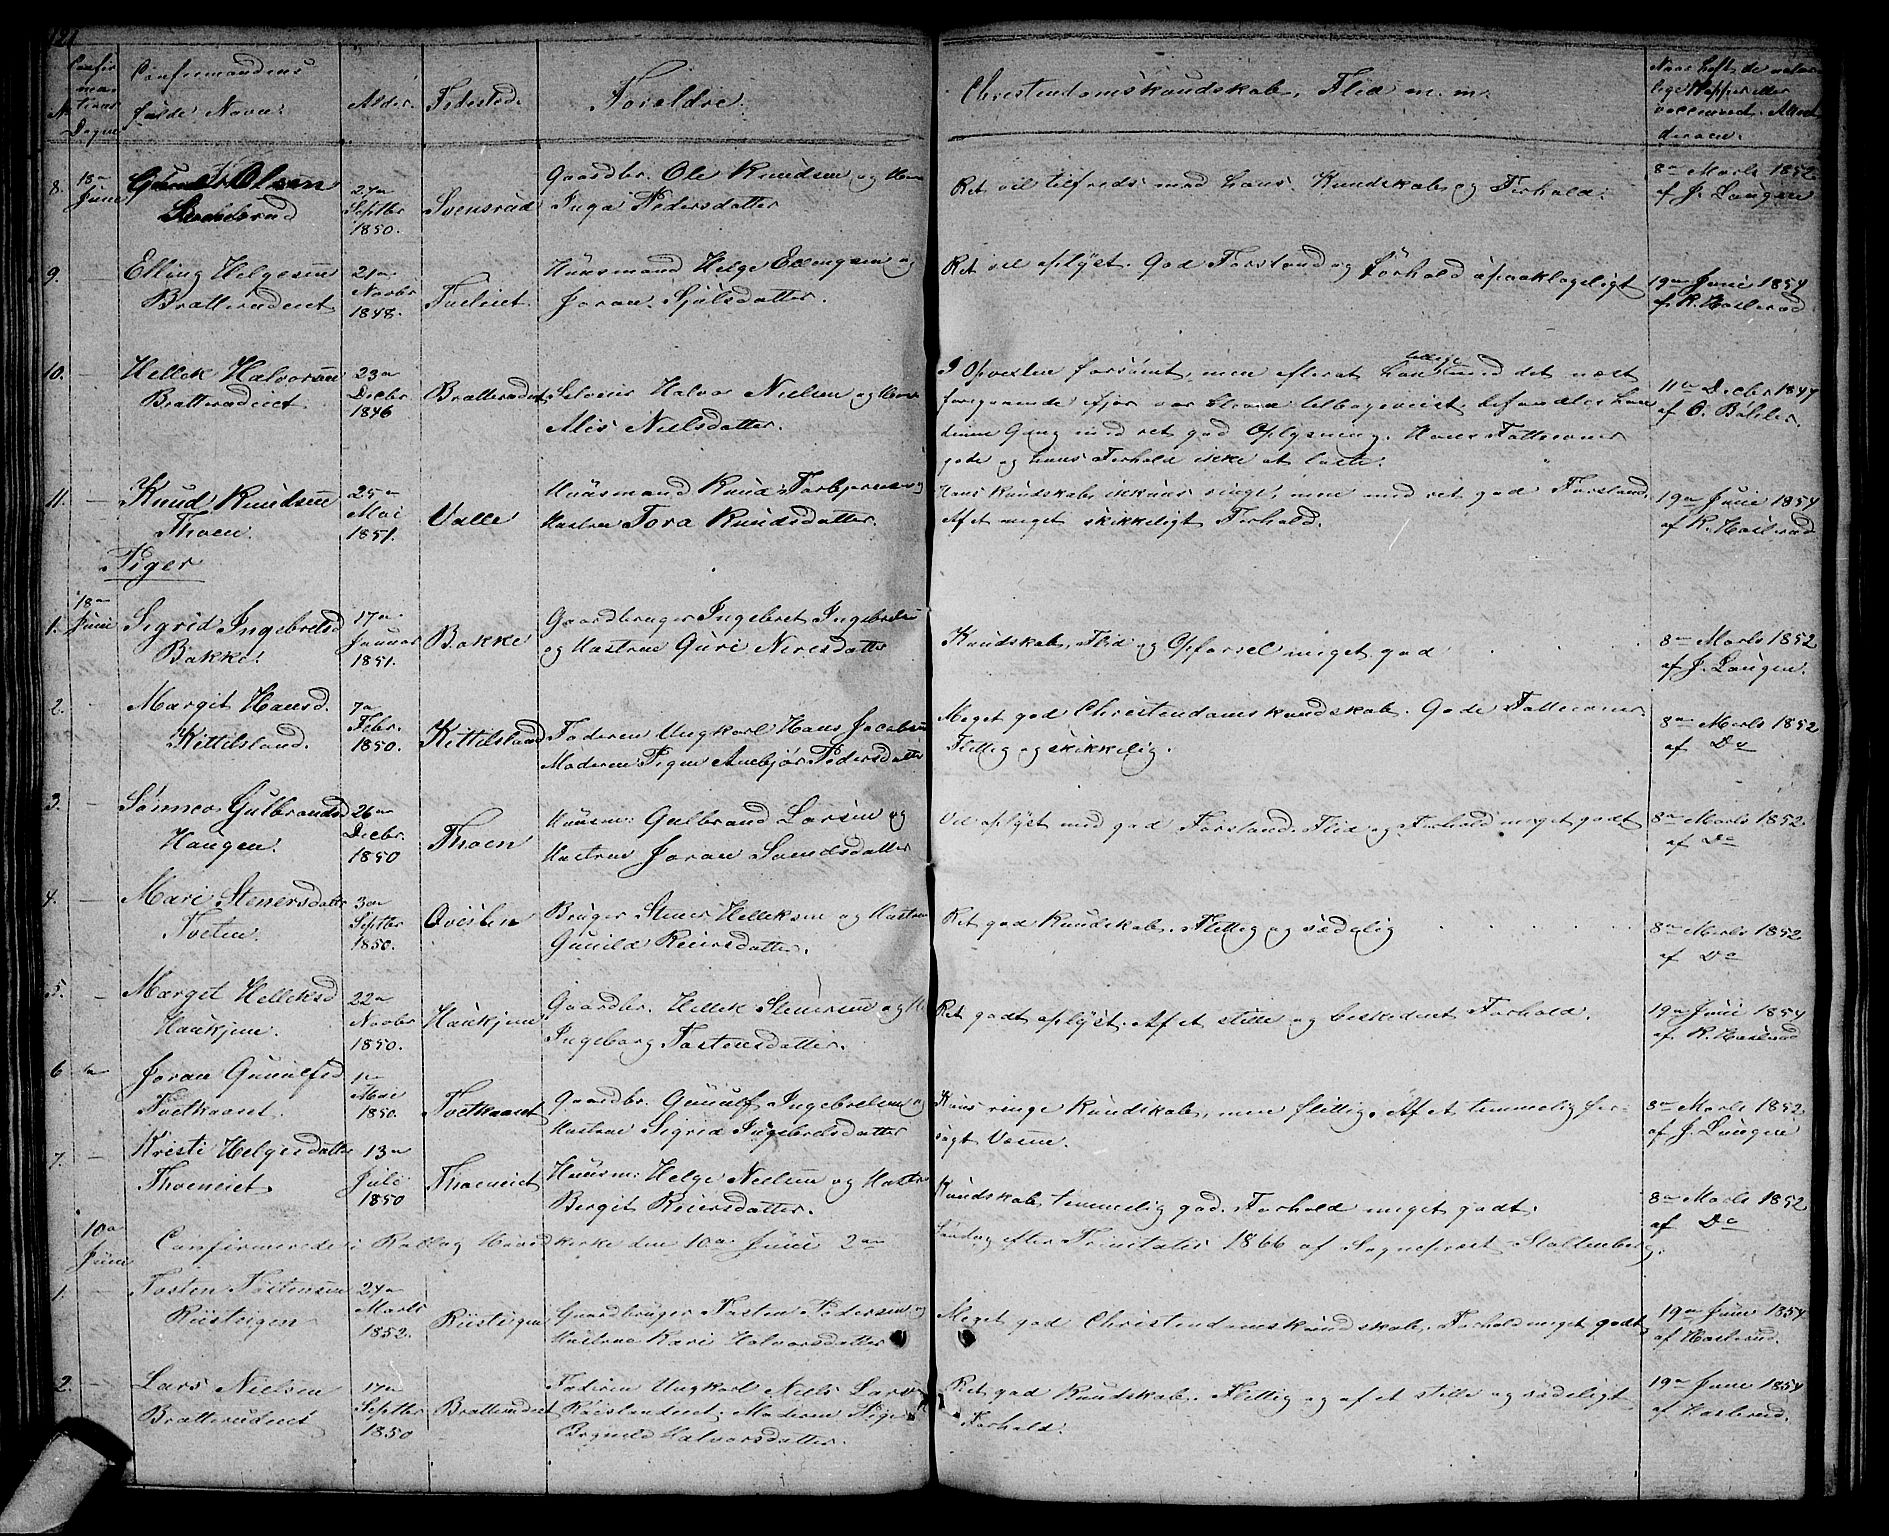 121
Confir
ma
tions
No Dagen
Confirmandens
fulde Navn.
Alder.
Fødested.
Forældre.
Christendomskundskab, Flid m. m.
Naar havt de natur
lige Kopper eller
vaccineret. Attest
derom.
8. 18de Juni
Olsen
27de Septbr 1850.
Svensrud
Gaardbr. Ole Knudsen og
Inga Pedersdatter
Ret vel tilfreds med hans Kundskab og Forhold.
8de Marts 1852
af J. Laugen
9. –
Elling Helgesen
Bratterudeiet
21de Novbr 1848.
Tveteiet.
Huusmand Helge Ellingsen og
Joran Sjulsdatter.
Ret vel oplyst. God Forstand og Forhold upaaklageligt
19de Juni 1854
af R. Haslerud
10. –
Hellek Halvorsen
Bratterudeiet
23de Decbr 1846
Bratterudeiet
Selveier Halvor Nielsen og
Nielsdatter.
I Opvexten forsømt, men efterat han ved det næst
foregaaende Aar var bleven tilbageviist, befandtes han
denne Gang med ret god Oplysning. Hans Fatteevner
gode og hans Forhold ikke at laste.
11te Decbr 1847
af O. Bøhler.
11. –
Knud Knudsen
Thoen.
25de Mai 1851.
Valle
Huusmand Knud Torbjørnsen og
Hustru Tora Knudsdatter.
Hans Kundskab ikkuns ringe, men med ret god Forstand.
Af et meget skikkeligt Forhold.
19de Juni 1854
af R. Haslerud
Piger
1. 18de Juni
Sigrid Ingebretsd
Bakke.
17de Januar 1851.
Bakke
Gaardbruger Ingebret Ingebretsen
og Hustrue Guri Nirisdatter
Kundskab, Flid og Opførsel meget god
8de Marts 1852
af J. Laugen.
2. –
Margit Hansd.
Kittilsland.
7de Febr. 1850.
Kittilsland
Faderen Ungkarl Hans Jacobsen
Moderen Pigen Anebjør Pedersdatter
Meget god Christendomskundskab. Gode Fatteevner.
Flittig og skikkelig.
8de Marts 1852
af Do
3. –
Sønneva Gulbrandsd
Haugen.
26de Decbr. 1850
Thoen
Huusm: Gulbrand Larsen og
Hustrue Joran Svendsdatter
Vel oplyst med god Forstand. Flid og Forhold meget godt
8de Marts 1852.
af Do
4. –
Mari Stenersdatter
Tveten.
3de Septbr 1850.
Qvisten
Bruger Stener Helleksen og Hustrue
Gunild Reiersdatter.
Ret god Kundskab. Flittig og sædelig
8de Marts 1852
af Do
5. –
Marget Helleksd
Haukjem.
22de Novbr 1850.
Haukjem
Gaardbr. Hellek Stenersen og H.
Ingeborg Tostensdatter.
Ret godt oplyst. Af et stille og beskedent Forhold.
19de Juni 1854
af R. Haslerud
6
Joran Gunulfsd
Tvetkaaset.
1te Mai 1850.
Tvetkaaset
Gaardbr. Gunulf Ingebretsen og
Hustrue Sigrid Ingebretsdatter
Kuns ringe Kundskab, men flittig. Af et temmelig for-
sagt Væsen.
8de Marts 1852
af J. Laugen
7. –
Kristi Helgesdatter
Thoeneiet
13de Juli 1850
Thoeneiet
Huusm: Helge Nielsen og Hustru
Bergit Reiersdatter.
Kundskab temmelig god. Forhold meget godt.
8de Marts 1852
af Do
10de Juni
Confirmerede i Rollag Hovedkirke den 10de Juni 2den
Søndag efter Trinitatis 1866 af Sognepræst Stoltenberg.
1. –
Tosten Tostensen
Rusteigen
24de Marts 1852.
Rusteigen
Gaardbruger Tosten Pedersen og
Hustrue Kari Halvorsdatter
Meget god Christendomskundskab. Forhold meget godt
19de Juni 1854
af Haslerud.
2. –
Lars Nielsen
Bratterudeiet
17de Septbr 1850
Bratterudeiet
Faderen Ungkarl Niels Larsen
Moderen Pigen
Halvorsdatter.
Ret god Kundskab. Flittig og af et stille og sædeligt
Forhold.
19de Juni 1854
af Haslerud.